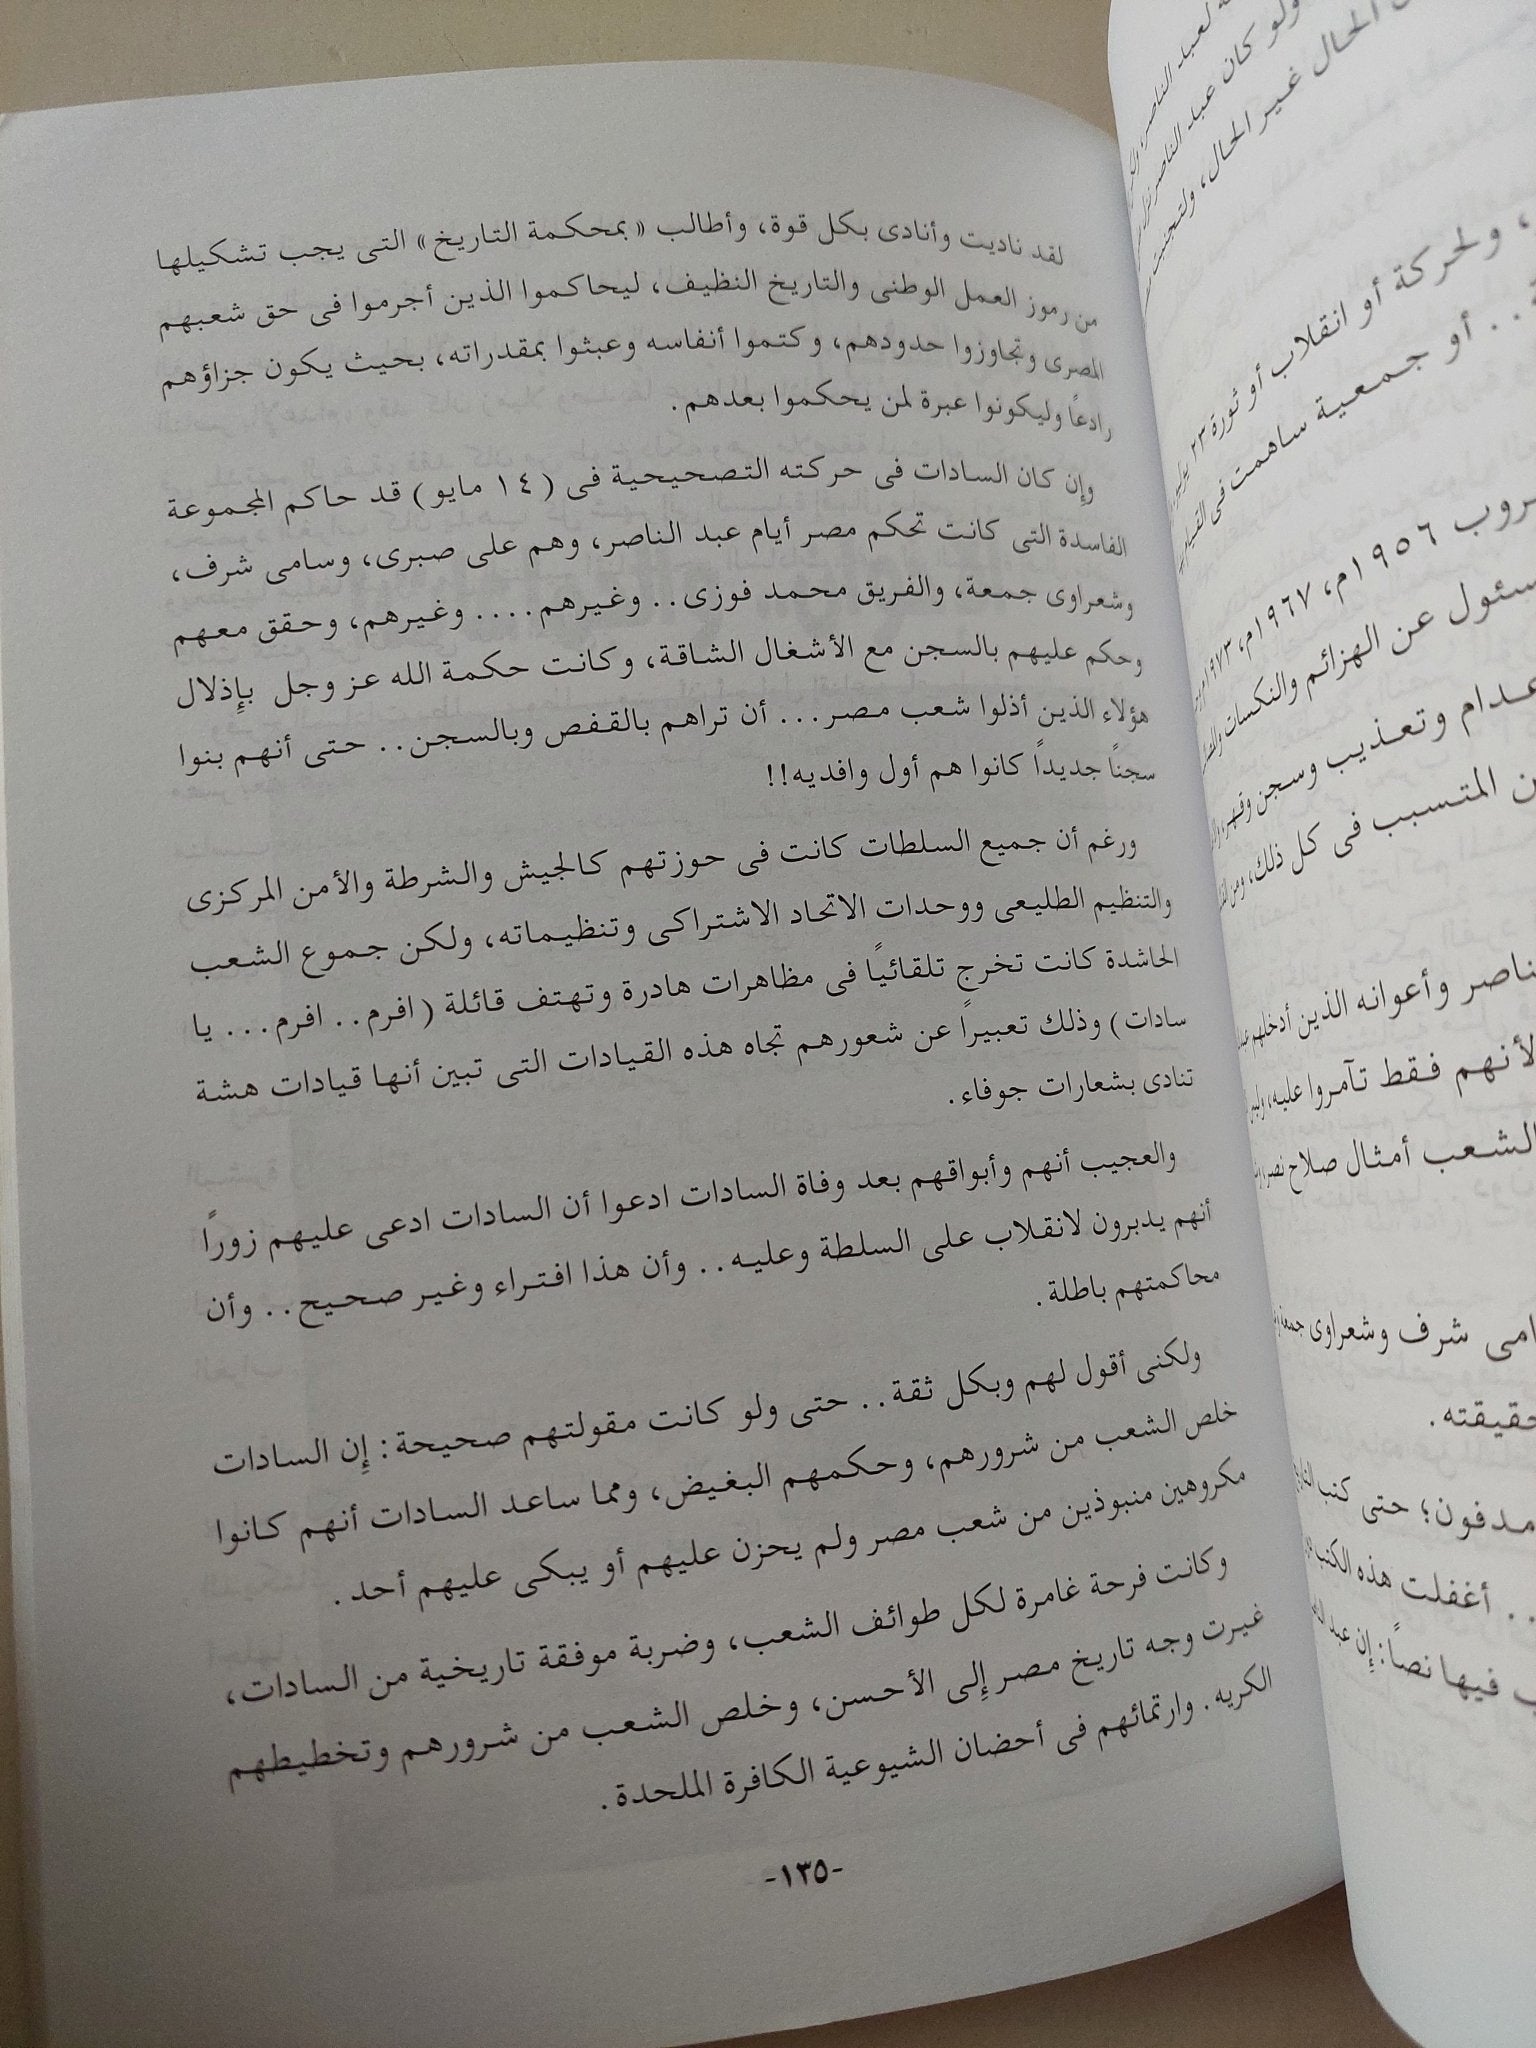 لقد ناديت وأنادى بكل قوة، وأطالب «بمحكمة التاريخ» التى يجب تشكيلها
من رموز العمل الوطنى والتاريخ النظيف، ليحاكموا الذين أجرموا فى حق شعبهم
المصرى وتجاوزوا حدودهم، وكتموا أنفاسه وعبثوا بمقدراته، بحيث يكون جزاؤهم
رادعاً وليكونوا عبرة لمن يحكموا بعدهم.
وإن كان السادات فى حركته التصحيحية فى (١٤ مايو) قد حاكم المجموعة
الفاسدة التى كانت تحكم مصر أيام عبد الناصر، وهم على صبرى، وسامى شرف،
وشعراوى جمعة، والفريق محمد فوزى.. وغيرهم.... وغيرهم، وحقق معهم
وحكم عليهم بالسجن مع الأشغال الشاقة، وكانت حكمة الله عز وجل بإذلال
هؤلاء الذين أذلوا شعب مصر... أن تراهم بالقفص وبالسجن.. حتى أنهم بنوا
سجناً جديداً كانوا هم أول وافديه!!
ورغم أن جميع السلطات كانت فى حوزتهم كالجيش والشرطة والأمن المركزى
والتنظيم الطليعى ووحدات الاتحاد الاشتراكى وتنظيماته، ولكن جموع الشعب
الحاشدة كانت تخرج تلقائيًا فى مظاهرات هادرة وتهتف قائلة (افرم.. افرم... يا
سادات) وذلك تعبيراً عن شعورهم تجاه هذه القيادات التى تبين أنها قيادات هشة
تنادى بشعارات جوفاء.
والعجيب أنهم وأبواقهم بعد وفاة السادات ادعوا أن السادات ادعى عليهم زوراً
أنهم يدبرون لانقلاب على السلطة وعليه.. وأن هذا افتراء وغير صحيح.. وأن
محاكمتهم باطلة.
ولكنى أقول لهم وبكل ثقة.. حتى ولو كانت مقولتهم صحيحة: إن السادات
خلص الشعب من شرورهم، وحكمهم البغيض، ومما ساعد السادات أنهم كانوا
مكروهين منبوذين من شعب مصر ولم يحزن عليهم أو يبكى عليهم أحد.
وكانت فرحة غامرة لكل طوائف الشعب، وضربة موفقة تاريخية من السادات،
غيرت وجه تاريخ مصر إلى الأحسن، وخلص الشعب من شرورهم وتخطيطهم
الكريه. وارتمائهم فى أحضان الشيوعية الكافرة الملحدة.
-١٣٥-
ولو كان عبد الناصر
الحال غير الحال،
، ولحركة أو انقلاب أو ثورة ٢٣
.. أو جمعية ساهمت فى
١٩٥٦م، ١٩٦٧م، ١٩٧٣م
عن الهزائم والنكسات
وتعذيب وسجن وقهر
المتسبب فى كل ذلك، ومن
وأعوانه الذين أدخلهم
لأنهم فقط تآمروا عليه،
الشعب أمثال صلاح نصر
شرف وشعراوى جمعة
حقيقته.
مدفون؛ حتى كتب
.. أغفلت هذه الكتب
فيها نصاً: إن عبد